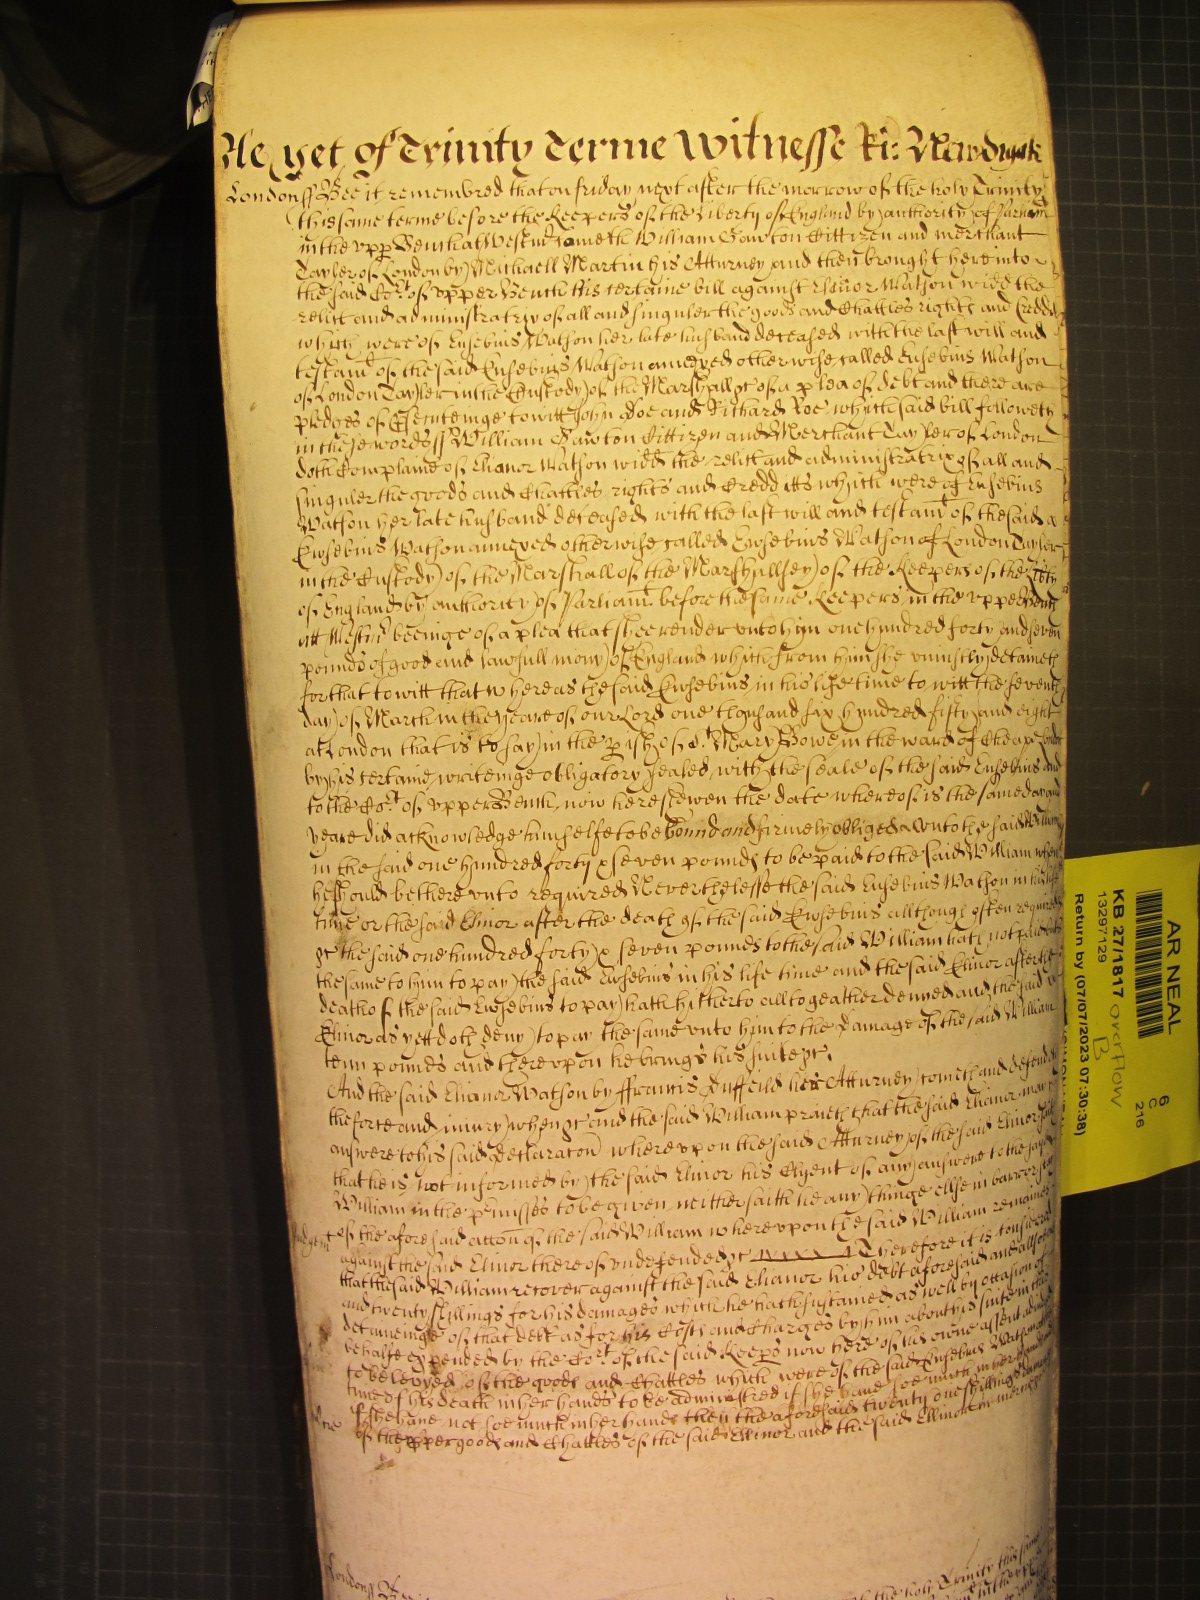 As yet of Trinity Terme Witnesse Ri: Newdigate
London ss Bee it remembred that on friday next after the morrow of the holy Trinity
this same terme before the Keepers of the liberty of England by authority of Parliam
in the upp Bench at Westmr cometh William Cawton Cittizen and merchant
Tayler of London by Michaell Martin his Atturney and then brought here into
the said Cort of upper Bench his certaine bill against Elinor Watson widd the
relict and administratrix of all and singuler the goods and Chattles rights and Creddits
which were of Eusebius Watson her late husband deceased with the last will and
testamt of the said Eusebius Watson annexed otherwise called Eusebius Watson
of London Tayler in the Custody of the Marshall &c of a plea of debt and there are
pledges of prosecuteinge to witt John Doe and Richard Roe which said bill followeth
in these words ss William Cawton Cittizen and Merchant Tayler of London
doth Complaine of Elianor Watson widd the relict and administratrix of all and
singuler the goods and Chattles rights and Credditts which were of Eusebius
Watson her late husband deceased with the last will and testamt of the said
Eusebius Watson annexed otherwise called Eusebius Watson of London Tayler
in the Custody of the Marshall of the Marshallsey of the Keepers of the libty
of England by authority of Parliamt before the same Keepers in the upper Bench
att Westmr beeinge of a plea that shee render unto him one hundred forty and seven
pounds of good and lawfull mony of England which from him she uniustly detaineth
for that to witt that whereas the said Eusebius in his life time to witt the seventh
day of March in the yeare of our Lord one thousand six hundred fifty and eight
at London that is to say in the pish of St Mary Bowe in the ward of Cheape London
by his certaine writeinge obligatory sealed with the seale of the said Eusebius and
to the Cort of upper Bench now here shewen the date whereof is the same day and
yeare did acknowledge himselfe to be bound and firmely obliged unto the said William
in the said one hundred forty & seven pounds to be paid to the said William when
he should be thereunto required Neverthelesse the said Eusebius Watson in his life
time or the said Elinor after the death of the said Eusebius allthough often required
&c the said one hundred forty & seven pounds to the said William hath not paid but
the same to him to pay the said Eusebius in his life time and the said Elinor after the
death of the said Eusebius to pay hath hitherto alltogeather denyed and the said
Elinor as yett doth deny to pay the same unto him to the damage of the said William
tenn pounds and thereupon he brings his suite &c.
And the said Elianor Watson by ffrancis Duffeild her Atturney cometh and defendeth
the force and iniury when &c and the said William praieth that the said Elianor may
answere to his said declaracon whereupon the said Atturney of the said Elinor saith
that he is not informed by the said Elinor his Clyent of any answere to the said
William in the premisses to be given neither saith he any thinge ellse in barr or stay
of the aforesaid accon of the said William whereupon the said William remaines
Judgemt
against the said Elinor thereof undefended &c Therefore it is considered
that the said William recover against the said Elianor his debt aforesaid and allsoe
and twenty shillings for his damages which he hath sustained as well by occasion of
detaineinge of that debt as for his Costs and Charges by him about his suite in this
behalfe expended by the Cort of the said Keeps now here of his owne assent
to be levyed of the goods and Chattles which were of the said Eusebius Watson
time of his death in her hands to be administred if she have soe much in her hands
if she have not soe much in her hands then the aforesaid twenty one shillings
of the pper goods and Chattles of the said Ellinor and the said Ellinor in mercy
London ss
of the holy Trinity this same
AR NEAL
6
C
216
KB 27/1817 overflow
B
13297129
Return by (07/07/2023 07:30:38)